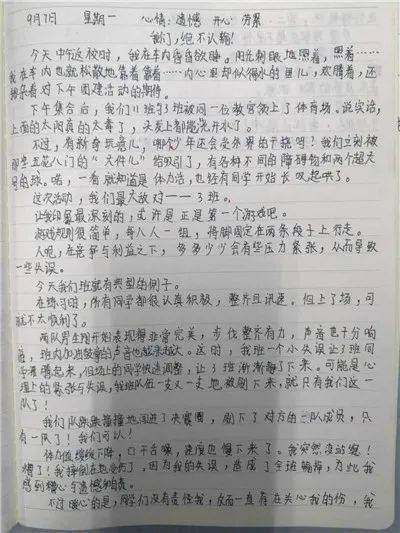 9月7日 星期一 心情:遗憾 开心 劳累
我们,绝不认输!
今天中午返校时,我在车内昏昏欲睡。阳光刺眼地照着,照着……
我在车内也就松散地靠着靠着……内心里却似得水的鱼儿,欢腾着,还
掺杂着对下午团建活动的期待。
下午集合后,我们11班与3班被同一位教官领上了体育场。说实话,
上面的太阳真的太毒了,头发上都能烧开水了。
不过,有新身玩意儿,哪个少年还会受外界的干扰呀!我们立刻被
那些五花八门的“大件儿”给吸引了,有各种不同的障碍物和两个超大
号的球。喏,一看就知道是体力活,也轻有同学开始长叹起哄了。
这次活动,我们最大敌——3班。
让我印象最深刻的,或许是正是第一个游戏吧。
游戏规则很简单,每八人一组,将脚固定在两条筏子上行走。
人呢,在竞争与利益之下,多多少少会有些压力紧张,从而导致
一些失误。
今天我们班就有典型的例子。
在练习时,所有同学都很认真积极,整齐且迅速。但上了场,可
就不太顺利了。
两队男生刚开始表现得非常完美,步伐整齐有力,声音也十分响
班内加油鼓励的声音也越来越大。这时,我班一个小失误让3班同
学沸腾起来,但场上的同学快速调整,让3班渐渐静了下来。可能是心
理上的紧张与失误,我班队伍一支又一支地被刷下来,就只有我们这一
队了!
我们队跌跌撞撞地闯进了决赛圈,刷下了对方的二队成员,只
有一队了!我们可以!
体力值缓缓下降,口干舌燥,速度也慢下来了。我突然凌的宽!
糟了!我摔倒在地受伤了,因为我的失误,造成了全班输掉,为此我
感到糟心与遗憾和自责。
不过暖心的是,同学们没有责怪我,反而一直在关心我的伤,我